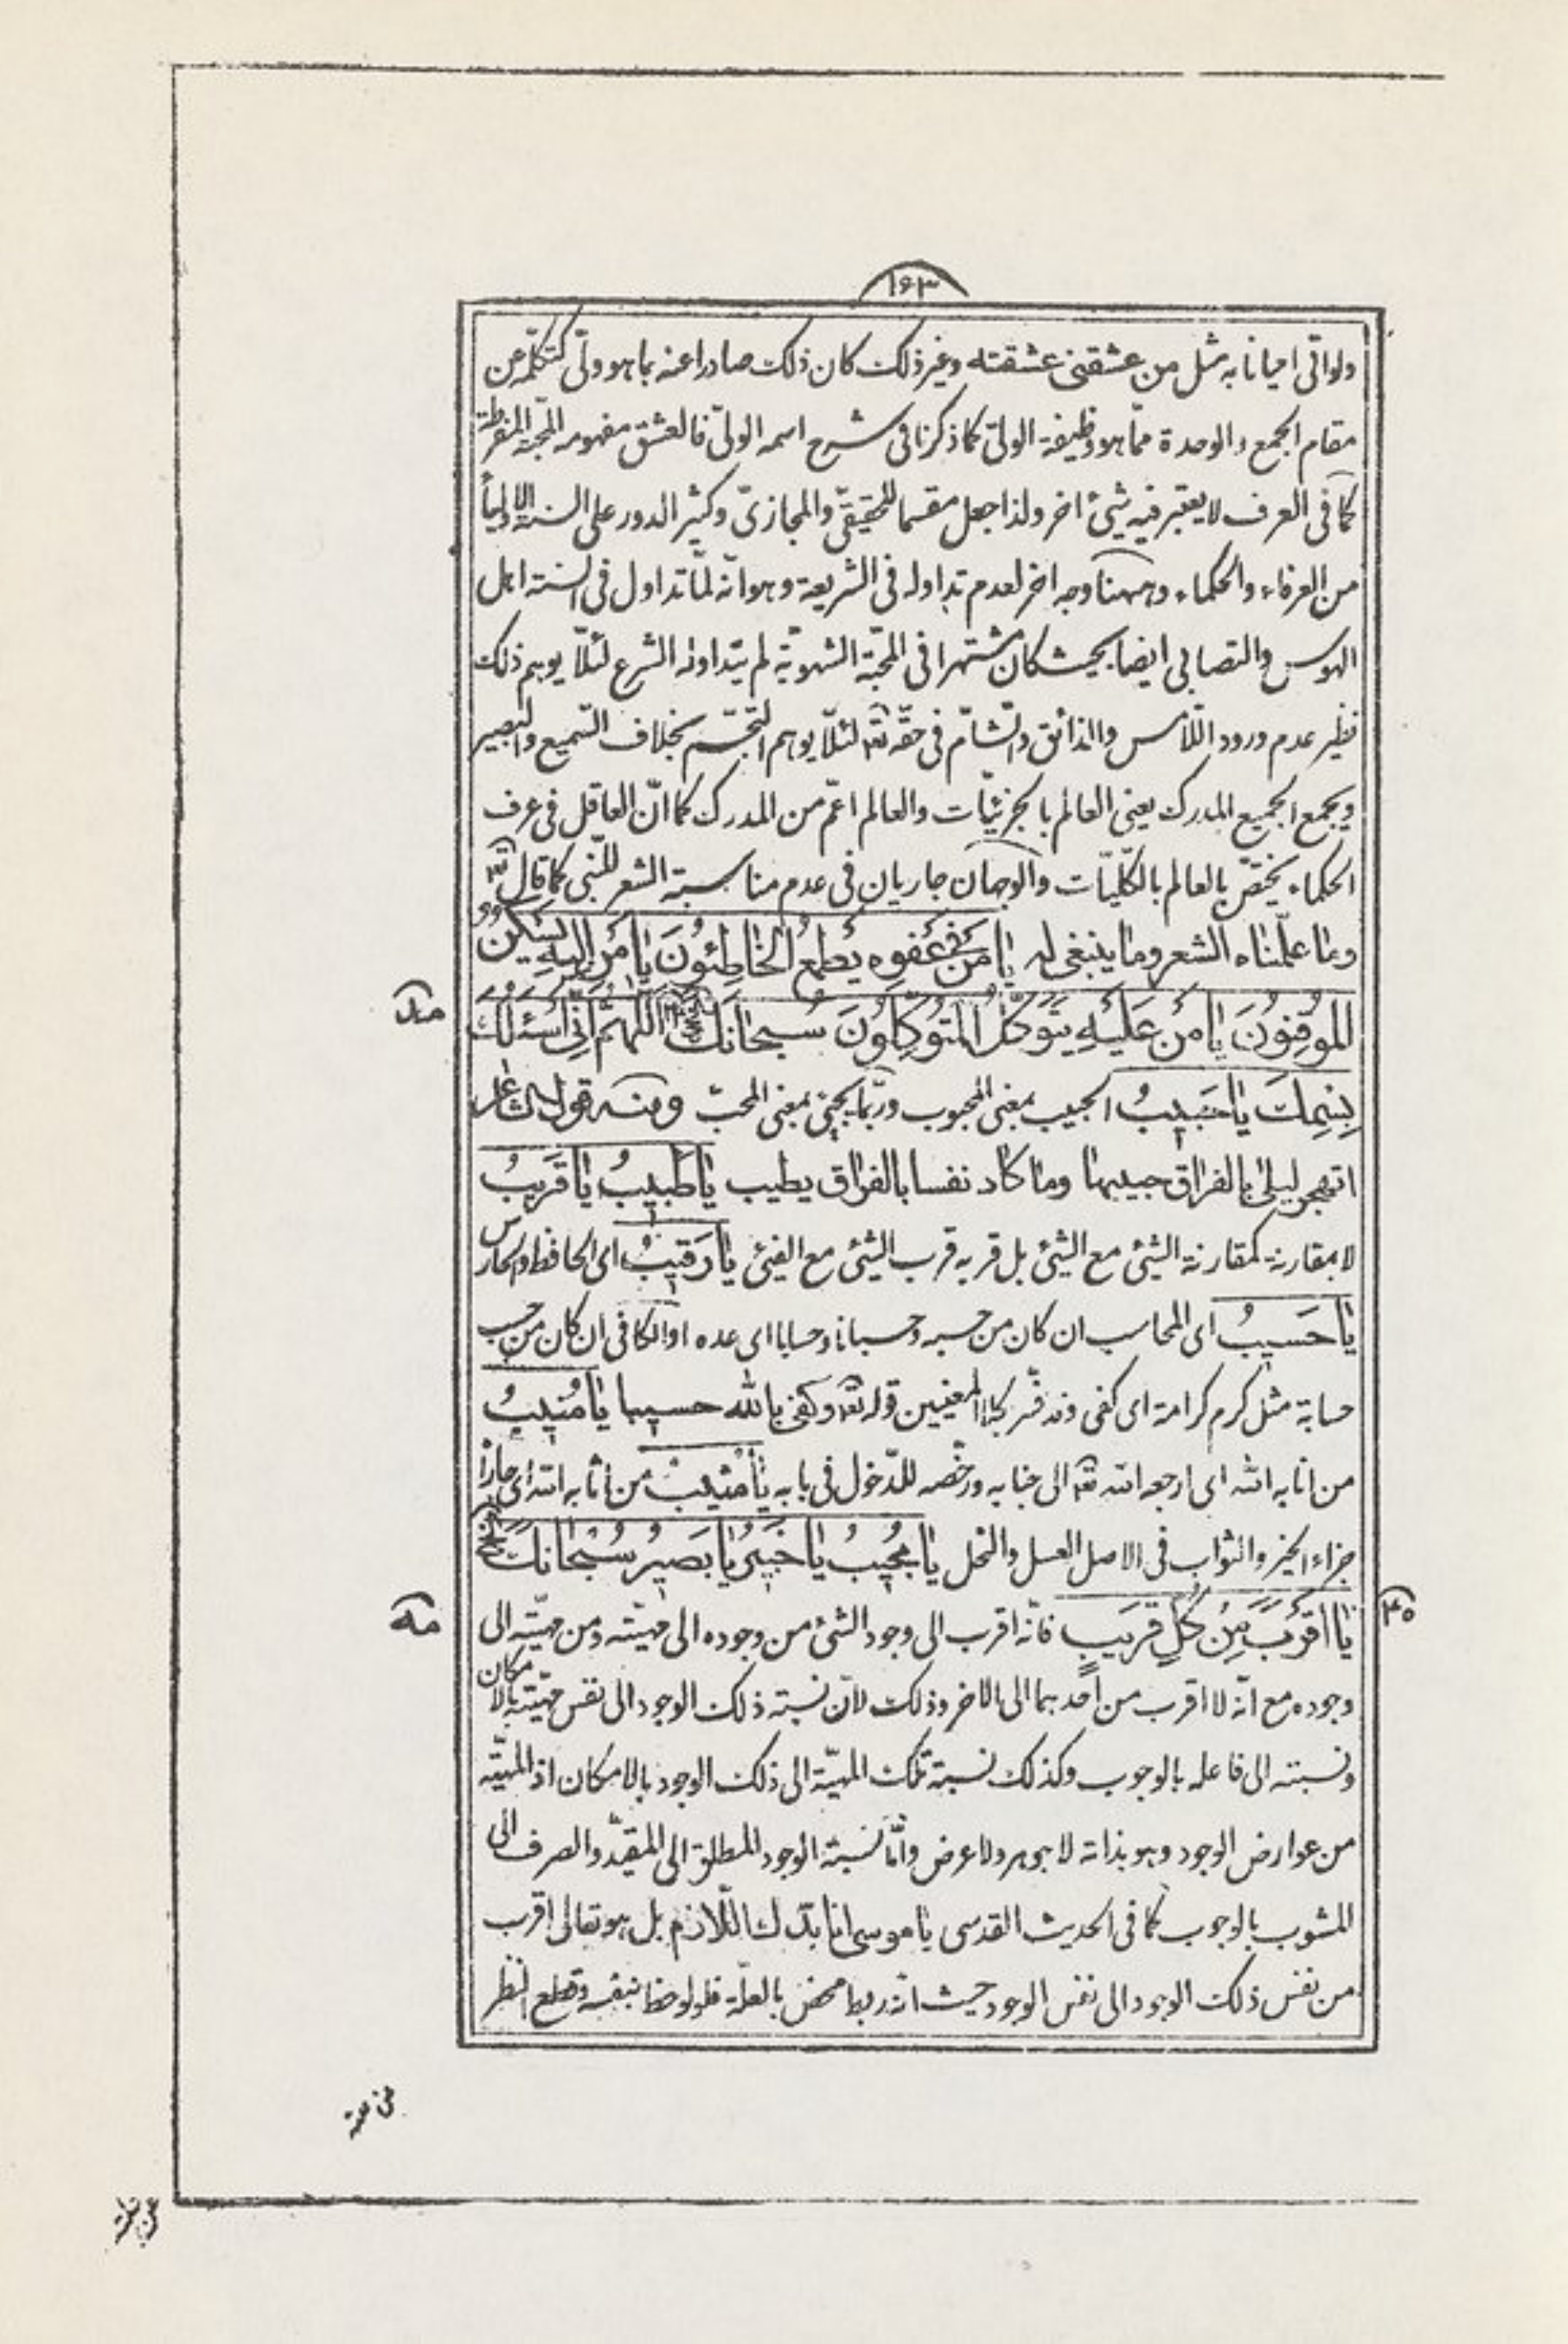 ١٦٣
ولو اتى احيانا به مثل من عشقنى عشقته وغير ذلك كان ذلك صادرا عنه بما هو ولى كتكلمه عن
مقام الجمع والوحدة مما هو وظيفة الولى كما ذكرنا فى شرح اسمه الولىّ فالعشق مفهومه المحبة المفرطة
كما فى العرف لا يعتبر فيه شئ اخر ولذا جعل مقسما للحقيقىّ والمجازىّ وكثير الدور على السنة الاولياء
من العرفاء والحكماء وههنا وجه اخر لعدم تداوله فى الشريعة وهو انّه لمّا تداول فى السنة اهل
الهوس والتصابى ايضا بحيث كان مشتهرا فى المحبّة الشهويّة لم يتداوله الشرع لئلّا يوهم ذلك
نظير عدم ورود اللّامس والذائق والشّامّ فى حقّه تعه لئلّا يوهم التجسّم بخلاف السّميع والبصير
ويجمع الجميع المدرك يعنى العالم بالجزئيّات والعالم اعمّ من المدرك كما انّ العاقل فى عرف
الحكماء يختصّ بالعالم بالكلّيّات والوجهان جاريان فى عدم مناسبة الشعر للنّبى كما قال تعه
وما علّمناه الشعر وما ينبغى له يَا مَنْ فى عَفْوِه يَطْمَعُ الْخَاطِئُونَ يَا مَنْ اِلَيْهِ يَسْكُنُ
الْمُوقِنُونَ يَا مَنْ عَلَيْهِ يَتَوَكَّلُ الْمُتَوَكِّلُونَ سُبْحَانَكَ الخ اَللّهُمَّ اِنّى اَسْئَلُكَ
مد
بِسْمِكَ يَا حَبيبُ الحبيب بمعنى المحبوب وربّما يجئ بمعنى المحبّ ومنه قول الشاعر
اتهجر ليلى بالفراق حبيبها وما كاد نفسا بالفراق يطيب يَا طَبيبُ يَا قَريبُ
لا بمقارنة كمقارنة الشئ مع الشئ بل قربه قرب الشئ مع الفيئ يَا رَقيبُ اى الحافظ والحارس
يَا حَسيبُ اى المحاسب ان كان من حسبه وحسبانا وحسابا اى عده او الكافى ان كان من حسب
حسابة مثل كرم كرامة اى كفى وقد فسّر بكلا المعنيين قوله تعه وكفى بالله حسيبا يَا مُنيبُ
من انابه الله اى ارجعه الله تعه الى جنابه ورخّصه للدّخول فى بابه يَا مُثيبُ من اثابه الله اى جازاه
جزاء الخير والثواب فى الاصل العسل والنحل يَا مُجيبُ يَا خَبيرُ يَا بَصيرُ سُبْحَانَكَ الخ
مه
٤٥
يَا اَقْرَبَ مِنْ كُلِّ قَريبٍ فانّه اقرب الى وجود الشئ من وجوده الى مهيّته ومن مهيّته الى
وجوده مع انّه لا اقرب من احدهما الى الاخر وذلك لانّ نسبة ذلك الوجود الى نفس مهيّته بالامكان
ونسبته الى فاعله بالوجوب وكذلك نسبة تلك المهيّة الى ذلك الوجود بالامكان اذ المهيّة
من عوارض الوجود وهو بذاته لا جوهر ولا عرض وامّا نسبة الوجود المطلق الى المقيّد والصرف الى
المشوب بالوجوب كما فى الحديث القدسى يا موسى انا بدّك اللّازم بل هو تعالى اقرب
من نفس ذلك الوجود الى نفس الوجود حيث انّه ربط محض بالعلّة فلو لوحظ بنفسه وقطع النظر